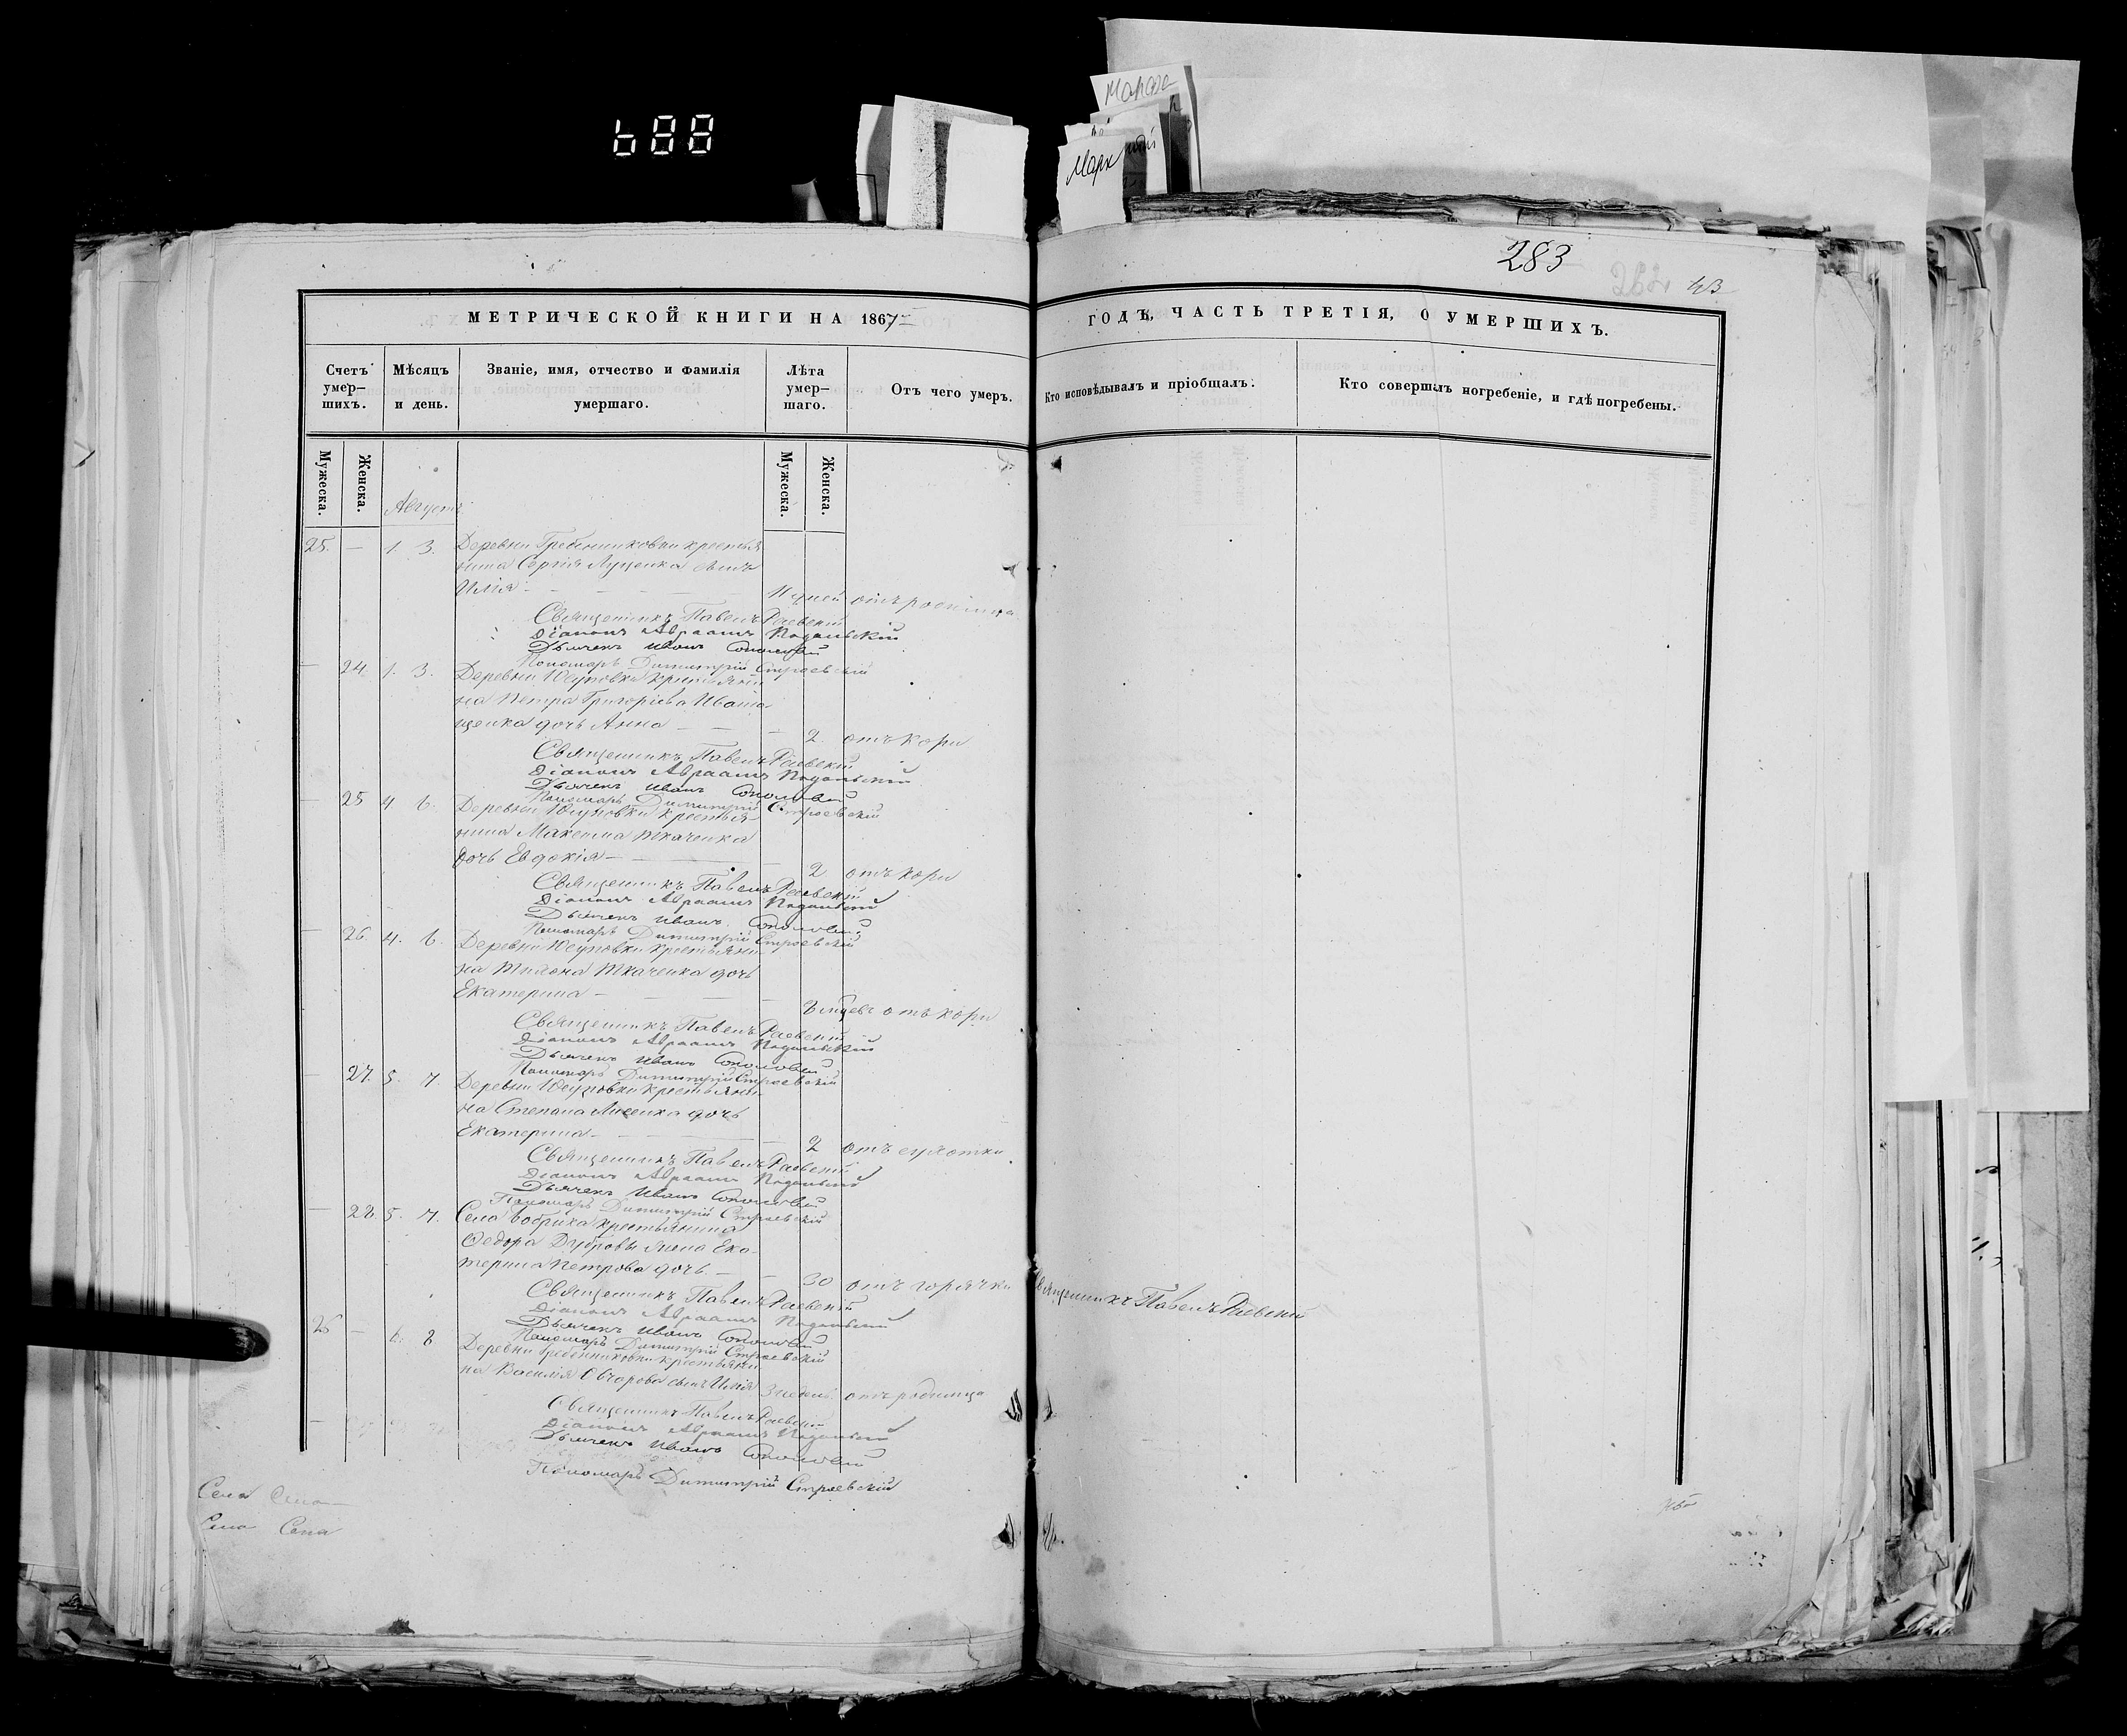 Марк
283
43
МЕТРИЧЕСКОЙ КНИГИ НА 1867
ГОДЪ, ЧАСТЬ ТРЕТІЯ, О УМЕРШИХЪ.
Счетъ умер–шихъ.
Мѣсяцъ и день.
Званіе, имя, отчество и фамилія умершаго.
Лѣта умер–шаго.
Отъ чего умеръ.
Кто исповѣдывалъ и пріобщалъ.
Кто совершалъ погребеніе, и гдѣ погребены.
Мужеска.
Женска.
Мужеска.
Женска.
Августъ
25. — 1. 3. Деревни Гребенниковки крестья
нина Сергія Луценка сынъ
Илія — 11 дней отъ родимца
Священникъ Павелъ Раевскій
Діаконъ Авраамъ Подольскій
Дьячекъ Иванъ
Пономарь Димитрій Строевскій
— 24. 1. 3. Деревни Юсуповки крестьяни
на Петра Григоріева Иваш
щенка дочь Анна — 2. отъ кори
Священникъ Павелъ Раевскій
Діаконъ Авраамъ Подольскій
Дьячекъ Иванъ
Пономарь Димитрій Строевскій
— 25 4 6. Деревни Юсуповки крестья
нина Максима Ткаченка
дочь Евдокія — 2 отъ кори
Священникъ Павелъ Раевскій
Діаконъ Авраамъ Подольскій
Дьячекъ Иванъ
Пономарь Димитрій Строевскій
— 26. 4. 6. Деревни Юсуповки крестьяни
на Ткаченка дочь
Екатерина — отъ кори
Священникъ Павелъ Раевскій
Діаконъ Авраамъ Подольскій
Дьячекъ Иванъ
Пономарь Димитрій Строевскій
— 27. 5. 7. Деревни Юсуповки крестьяни
на Степана Лисенка дочь
Екатерина — 2 отъ сухотки
Священникъ Павелъ Раевскій
Діаконъ Авраамъ Подольскій
Дьячекъ Иванъ
Пономарь Димитрій Строевскій
— 28. 5. 7. Села Бобрика крестьянина
Федора Дубровы жена Ека
терина Петрова дочь — 30 отъ горячки Священникъ Павелъ Раевскій
Священникъ Павелъ Раевскій
Діаконъ Авраамъ Подольскій
Дьячекъ Иванъ
Пономарь Димитрій Строевскій
26 — 6. 8 Деревни Гребенниковки крестьяни
на Василія Овчарова сынъ Илія 3 недель отъ родимца
Священникъ Павелъ Раевскій
Діаконъ Авраамъ Подольскій
Дьячекъ Иванъ
Пономарь Димитрій Строевскій
Села Села
Села Села